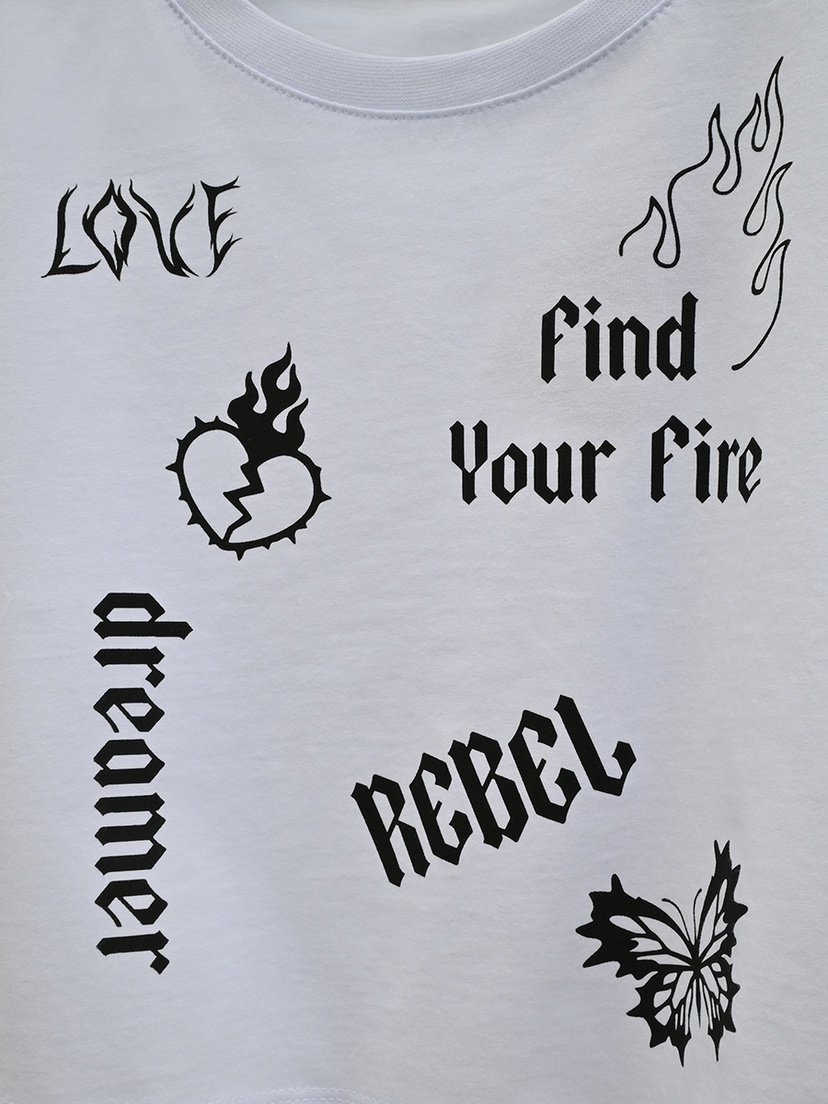 LOVE
Find
Your Fire
dreamer
REBEL